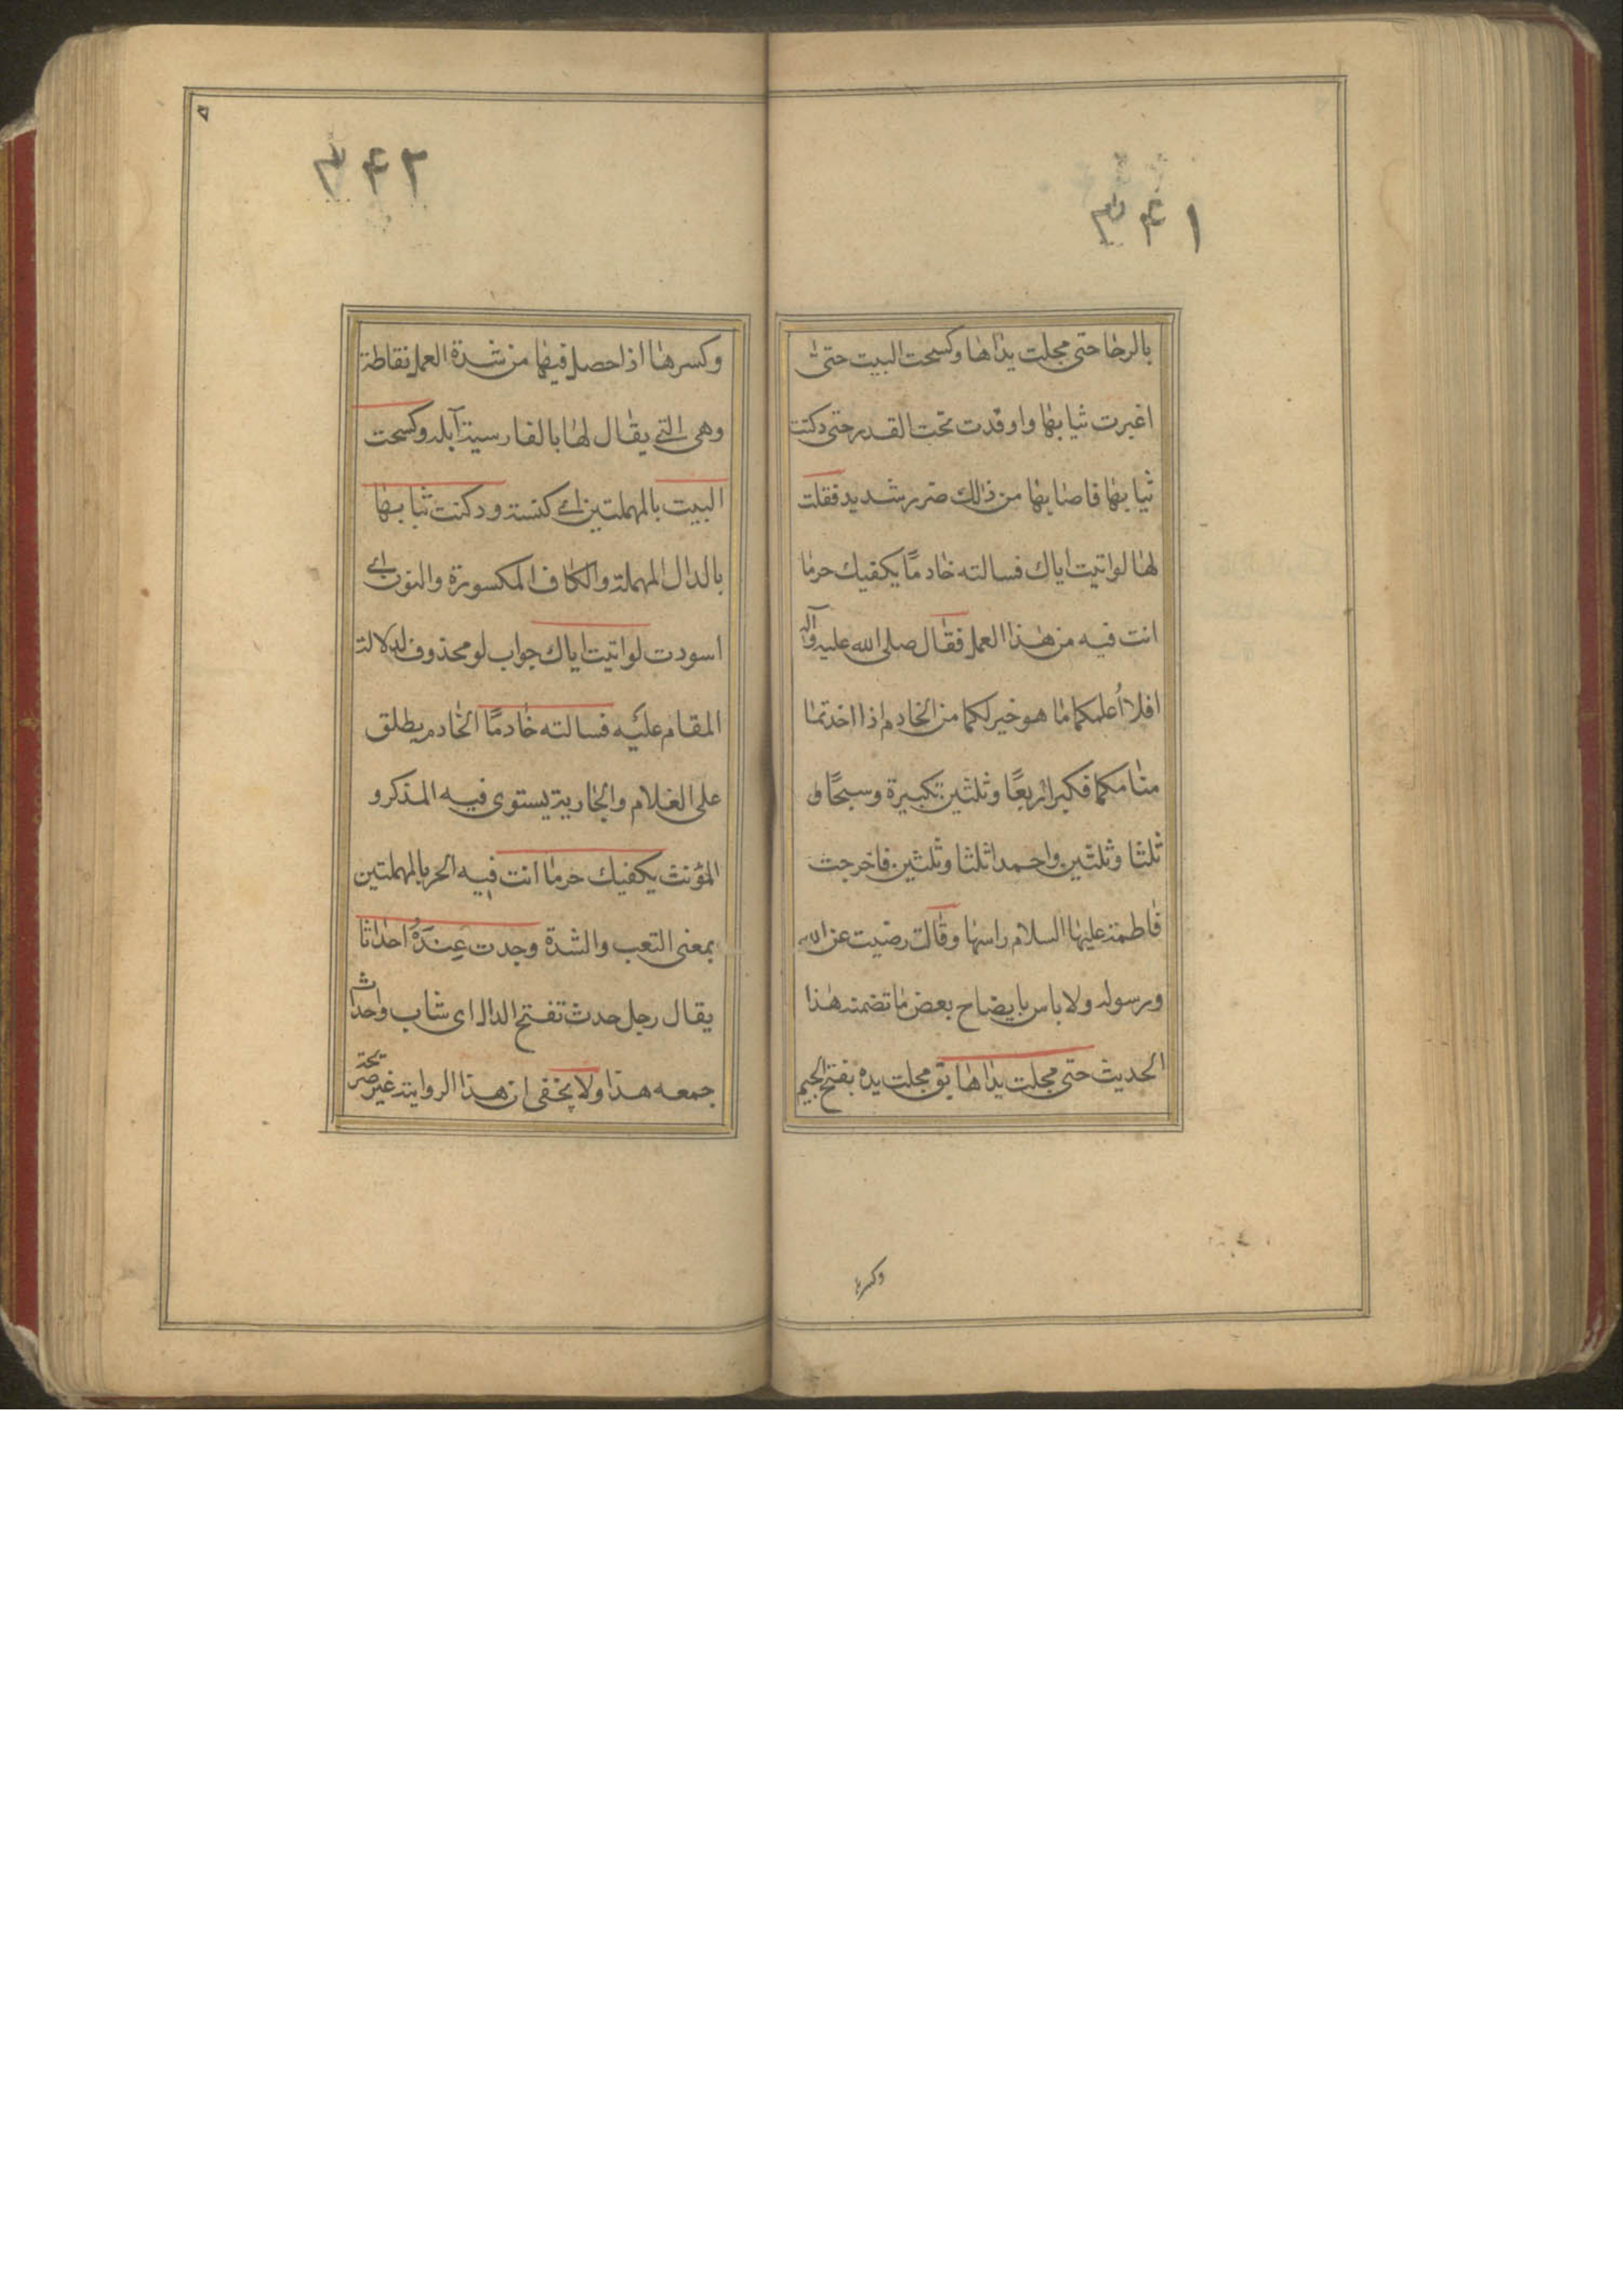 ۳۴۱
بالرحا حتى مجلت يداها وكسحت البيت حتى
اغبرت ثيابها واوقدت تحت القدر حتى دكنت
ثيابها فاصابها من ذلك ضرر شديد فقلت
لها لو اتيت اباك فسالته خادمًا يكفيك حرما
انت فيه من هذا العمل فقال صلى الله عليه وآله
افلا أعلمكما ما هو خير لكما من الخادم اذا اخذتما
منامكما فكبرا اربعًا وثلثين تكبيرة وسبحا و
ثلثا وثلثين واحمدا ثلثا وثلثين فاخرجت
فاطمة عليها السلام راسها وقالت رضيت عن الله
ورسوله ولا باس بايضاح بعض ما تضمنه هذا
الحديث حتى مجلت يداها يق مجلت يده بفتح الجيم
وكسرها
۳۴۲
وكسرها اذا حصل فيها من شدة العمل نقاطة
وهى التي يقال لها بالفارسية آبله وكسحت
البيت بالمهملتين اے كنسته ودكنت ثيابها
بالدال المهملة والكاف المكسورة والنون اے
اسودت لو اتيت اباك جواب لو محذوف لدلالة
المقام عليه فسالته خادمًا الخادم يطلق
على الغلام والجارية يستوى فيه المذكر و
المؤنث يكفيك حرما انت فيه الحر بالمهملتين
بمعنى التعب والشدة وجدت عِندَهُ احداثا
يقال رجل حدث تفتح الدال اى شاب واحداث
جمعه هذا ولا يخفى ان هذا الرواية غير صريحة